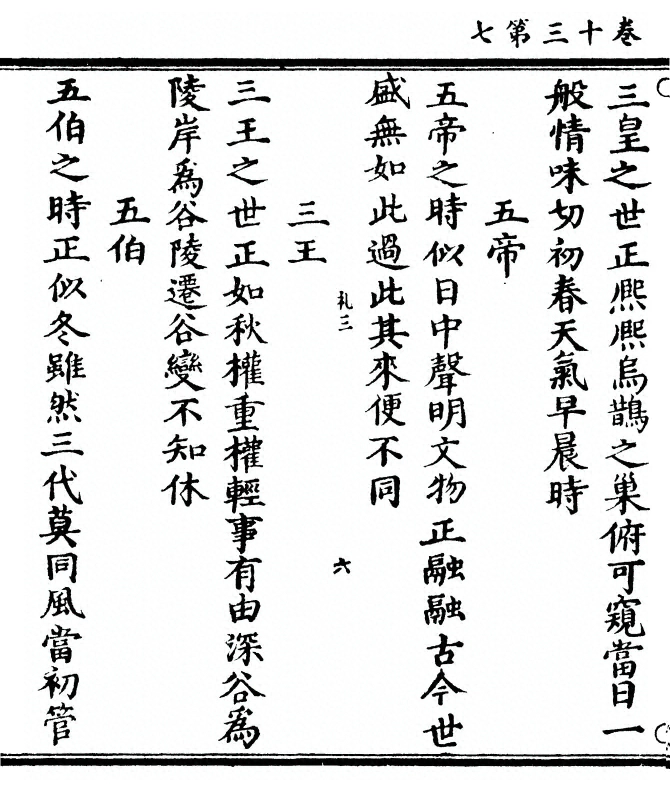 卷十三第七
三皇之世正熈熈烏鵲之巢俯可窺當日一
般情味切初春天氣早晨時
五帝
五帝之時似日中聲明文物正融融古今世
盛無如此過此其來便不同
礼三
六
三王
三王之世正如秋權重權輕事有由深谷爲
陵岸爲谷陵遷谷變不知休
五伯
五伯之時正似冬雖然三代莫同風當初管